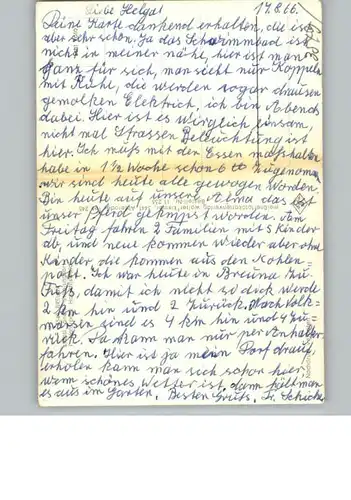 Liebe Helga! 17.8.66.
Deine Karte dankend erhalten, die ist
aber sehr schön. Ja das Schwimmbad ist
nicht in meiner nähe, hier ist man
ganz für sich, man sieht nur Koppeln
mit Kühe, die werden sogar drausen
gemolken Elektrich, ich bin Abends
dabei. Hier ist es wirglich einsam,
nicht mal Strassen Beleuchtung ist
hier. Ich muß mit der Essen maßhalten
habe in 1½ Woche schon 6 zugenomen
wir sind heute alle gewogen worden.
Bin heute auf unsere Alma das ist
unser Pferd geknipst worden. Am
Freitag fahren 2 Familien mit 5 Kinder
ab, und neue kommen wieder aber ohne
Kinder, die kommen aus den Kohlen-
pott. Ich war heute in Breuna zu
Fuß, damit ich nicht so dick werde
2 km hin und 2 zurück. Nach Volk-
marsen sind es 4 km hin und 4 zu-
rück. Da kann man nur per Anhalter
fahren. Hier ist ja mein Dorf drauf,
erholen kann man sich schon hier,
wenn schönes Wetter ist, dann hält man
es aus im Garten. Besten Gruß, Fr.